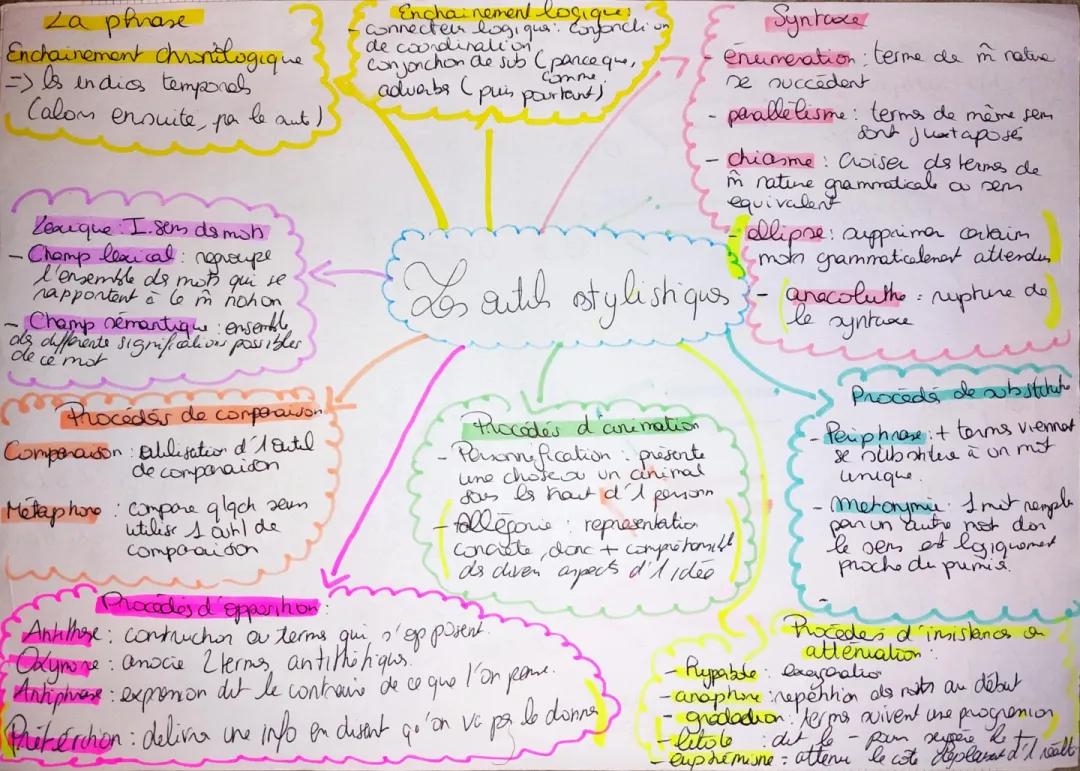 La phrase
Enchainement chronologique
=> les indices temporels
(alors ensuite, par le
Enchainement logique:
- connecteur logique: conjonction
de coordination
conjonction de sub (parce que,
comme
adverbes (puis pourtant)
Syntaxe
- énumération : terme de m̂ nature
se succèdent
- parallélisme : termes de même sens
sont juxtaposés
- chiasme : croiser des termes de
m̂ nature grammaticale ou sens
equivalent
- ellipse : supprimer certains
mots grammaticalement attendus
- anacoluthe : rupture de
la syntaxe
Lexique : I. sens des mots
- Champ lexical : regroupe
l'ensemble des mots qui se
rapportent à la m̂ notion
- Champ sémantique : ensemble
des différentes significations possibles
de ce mot
Les outils stylistiques
Procédés de comparaison
Comparaison : utilisation d'1 outil
de comparaison
Métaphore : compare qlqch sans
utiliser 1 outil de
comparaison
Procédés d'animation
- Personnification : présente
une chose ou un animal
sous les trait d'1 personn
- Allégorie : représentation
concrète, donc + compréhensible
des divers aspects d'1 idée
Procédés de substitution
- Périphrase : + termes viennent
se substituer à un mot
unique.
- Métonymie : 1 mot remplacé
par un autre mot dont
le sens est logiquement
proche du premier.
Procédés d'opposition :
Antithèse : construction ou termes qui s'opposent.
Oxymore : associe 2 termes antithétiques.
Antiphrase : expression dit le contraire de ce que l'on pense.
Prétérition : délivre une info en disant qu'on va pas le donner
Procédés d'insistance ou
atténuation :
- Hyperbole : exagération
- anaphore : répétition des mots au début
- gradation : termes suivent une progression
- litote : dit le - pour suggérer le +
- euphémisme = attenu le coté déplaisant d'1 réalité